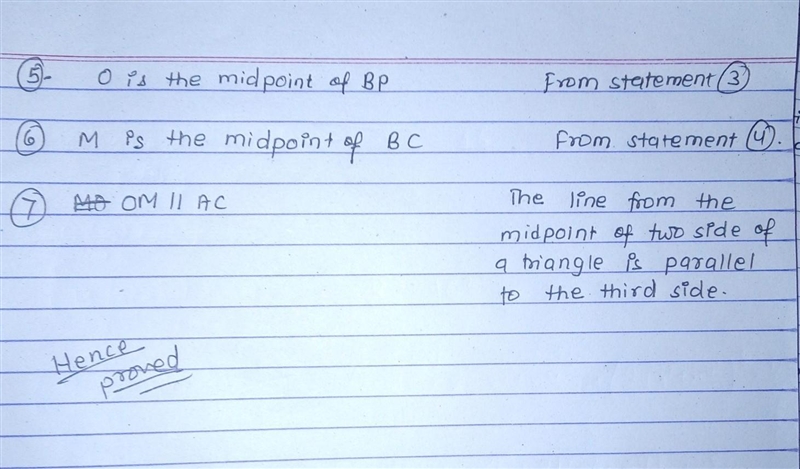 (5)- O is the midpoint of BP From statement (3)
(6) M is the midpoint of BC From statement (4).
(7) OM || AC The line from the
midpoint of two side of
a triangle is parallel
to the third side.
Hence
proved